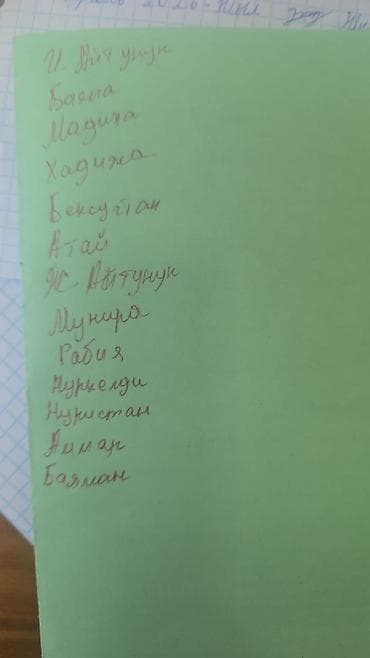 2026-жыл
И. Айтунук
Баяла
Мадина
Хадижа
Бексултан
Атай
Ж. Айтунук
Мунира
Рабия
Нуркелди
Нуристан
Аимар
Баяман